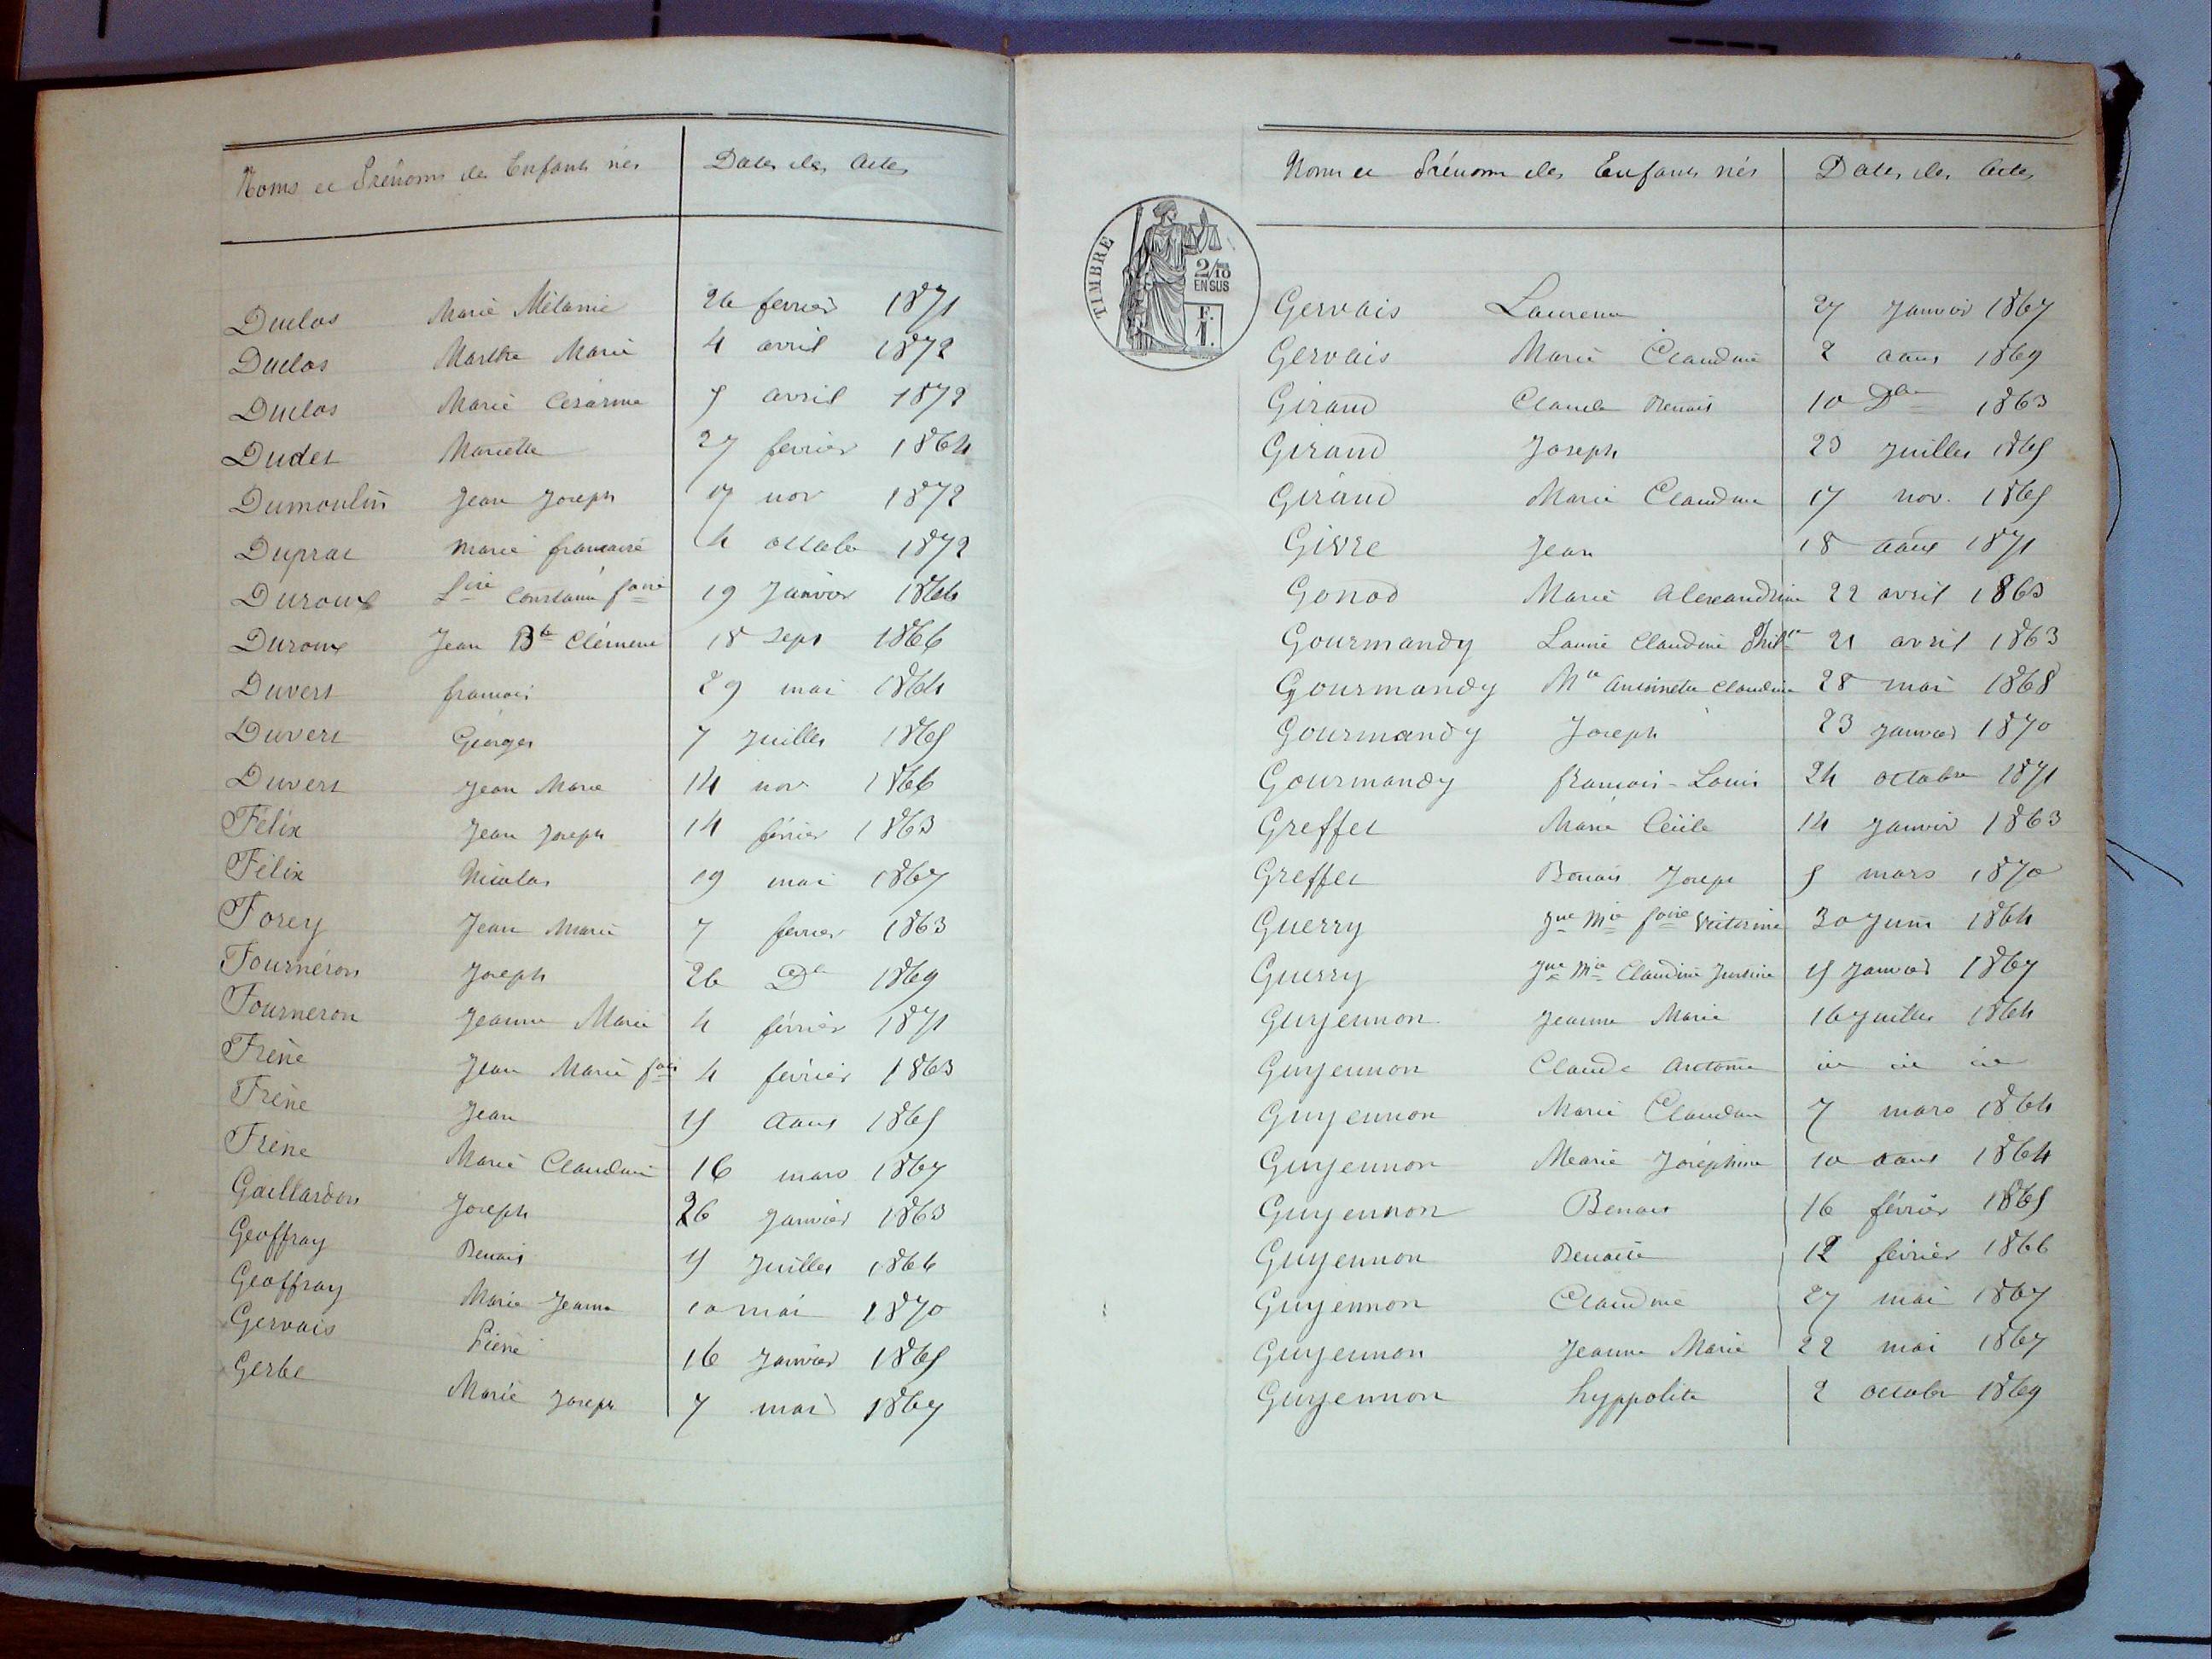 Noms et Prénoms des Enfants nés Dates des Actes
Duclos Marie Mélanie 26 fevrier 1871
Duclos Marthe Marie 4 avril 1872
Duclos Marie Césarine 5 avril 1872
Dudet Mariette 27 fevrier 1864
Dumoulin Jean Joseph 17 nov 1872
Duprat Marie françoise 4 octobre 1872
Duroux Constance foise 19 Janvier 1866
Duroux Jean Bte Clément 18 Sept 1866
Duvert françois 29 mai 1864
Duvert Georges 7 Juillet 1865
Duvert Jean Marie 14 nov 1866
Félix Jean Joseph 14 février 1863
Félix Nicolas 19 mai 1867
Forey Jean Marie 7 fevrier 1863
Fournéron Joseph 26 Dbre 1869
Fourneron Jeanne Marie 4 février 1871
Frène Jean Marie fois 4 février 1863
Frène Jean 15 Aout 1865
Frène Marie Claudine 16 mars 1867
Gaillardon Joseph 26 Janvier 1863
Geoffray Benoit 15 Juillet 1866
Geoffray Marie Jeanne 10 mai 1870
Gervais Pierre 16 Janvier 1865
Gerbe Marie Joseph 7 mai 1867
Noms et Prénoms des Enfants nés Dates des Actes
TIMBRE
2/10
EN SUS
F.
1.
Gervais Laurent 27 Janvier 1867
Gervais Marie Claudine 2 aout 1869
Giraud Claude Benoit 10 Dbre 1863
Giraud Joseph 23 Juillet 1865
Giraud Marie Claudine 17 nov. 1865
Givre Jean 18 aout 1871
Gonod Marie Alexandrine 22 avril 1863
Gourmandy Laurie Claudine Philne 21 avril 1863
Gourmandy Mie Antoinette Claudine 28 mai 1868
Gourmandy Joseph 23 Janvier 1870
Gourmandy françois-Louis 24 octobre 1871
Greffet Marie Cécile 14 Janvier 1863
Greffet Benoit Joseph 5 mars 1870
Guerry Jne Mie foise Victorine 30 Juin 1864
Guerry Jne Mie Claudine Justine 15 Janvier 1867
Guyennon Jeanne Marie 16 Juillet 1864
Guyennon Claude Antoine id id id
Guyennon Marie Claudine 7 mars 1864
Guyennon Marie Joséphine 10 aout 1864
Guyennon Benoit 16 février 1865
Guyennon Benoite 12 février 1866
Guyennon Claudine 27 mai 1867
Guyennon Jeanne Marie 22 mai 1867
Guyennon hyppolite 2 octobre 1869